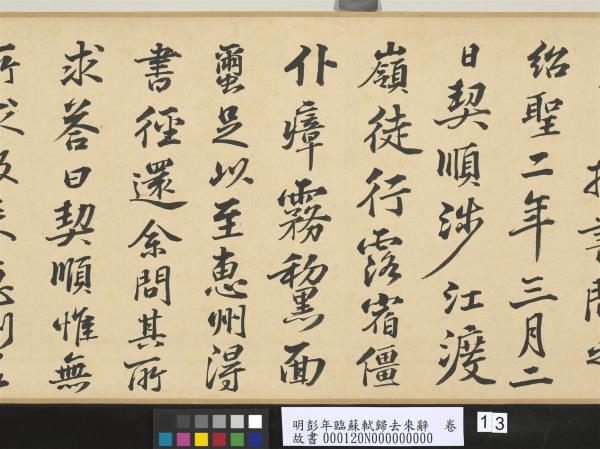 書問之
紹聖二年三月二
日契順涉江渡
嶺徒行露宿僵
仆瘴霧黧面
繭足以至惠州得
書徑還余問其所
求荅曰契順惟無
所求
明彭年臨蘇軾歸去來辭 卷
故書000120N000000000
13